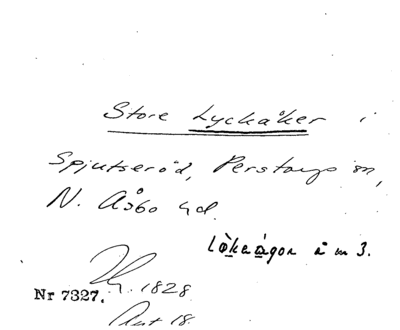 Store Lyckåker i
Spjutseröd, Perstorps sn,
N. Åsbo hd.
låkaågor å m 3.
1828
Nr 7327.
Akt 18